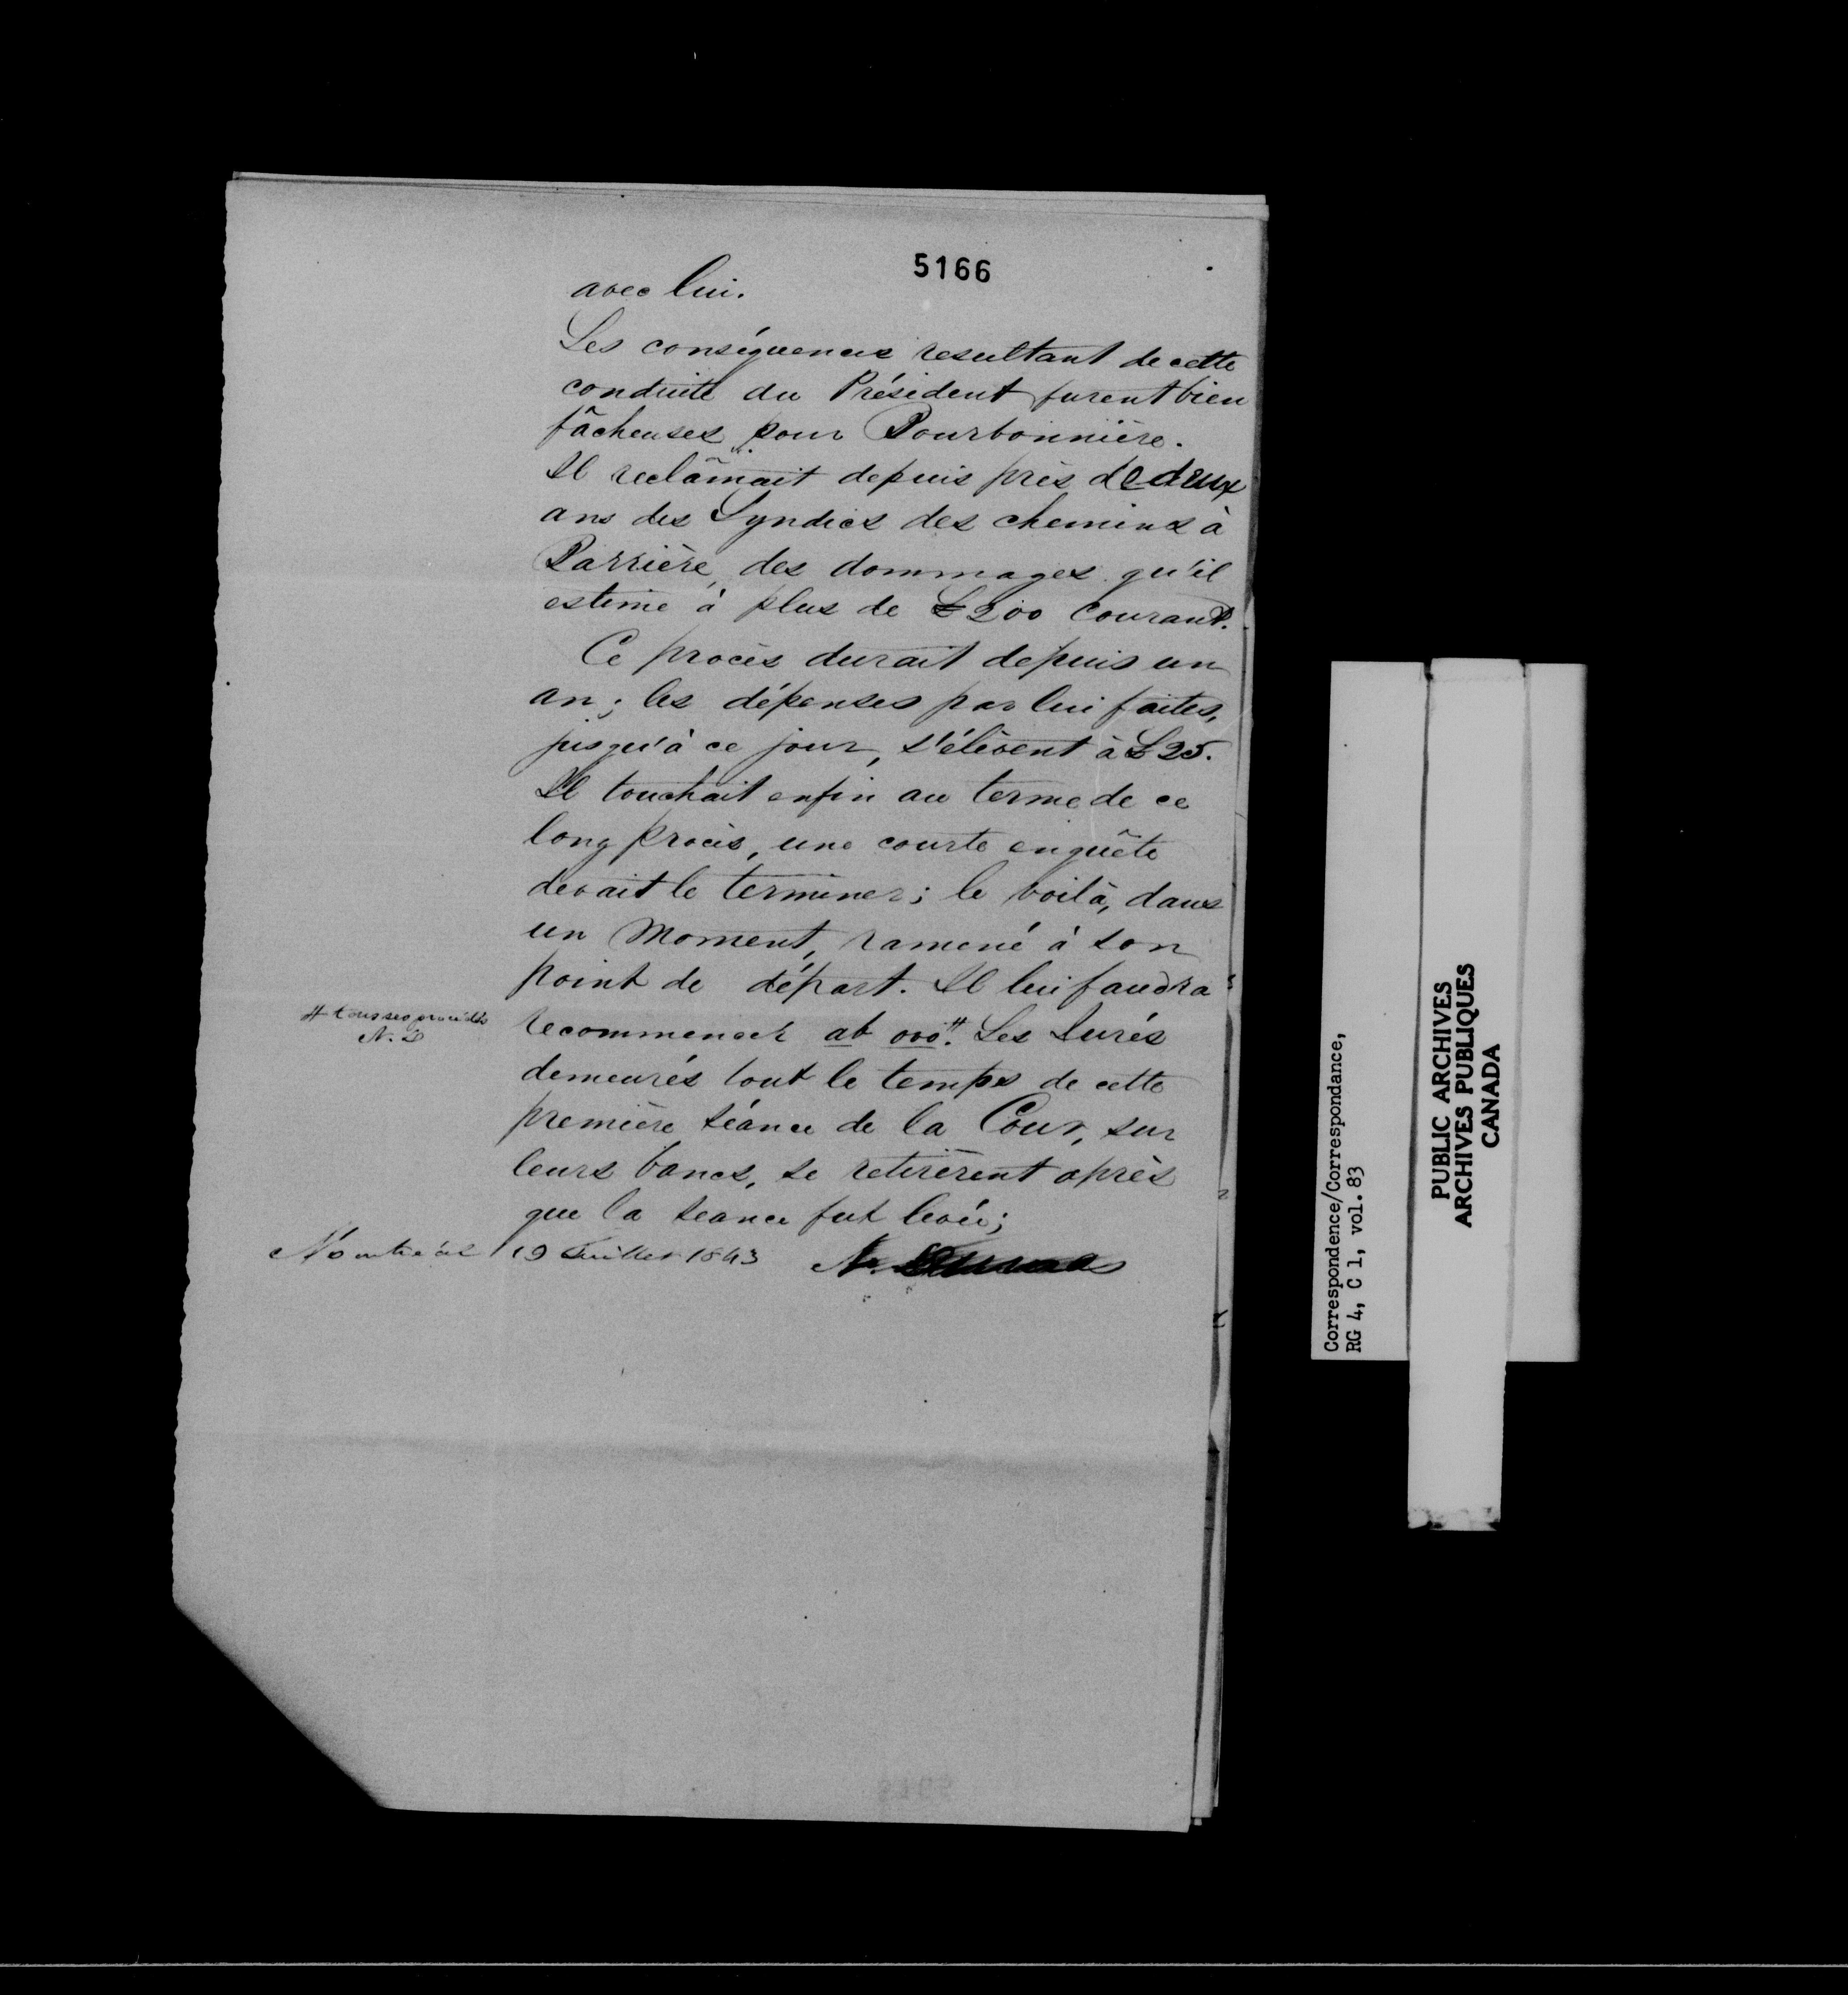 5166
avec lui.
Les conséquences resultant de cette
conduite du Président furent bien
fâcheuses pour Bourbonnière.
Il reclâmait depuis près de deux
ans des Syndics des chemins à
Barrière, des dommages qu'il
estime à plus de £200 courant.
Ce procès durait depuis un
an; les dépenses par lui faites,
jusqu'à ce jour, s'élèvent à £25.
Il touchait enfin au terme de ce
long procès, une courte enquête
devait le terminer; le voilà, dans
un moment, ramené à son
point de départ. Il lui faudra
recommencer ab ovo #. Les Jurés
# tous ses procédés
N. D
demeurés tout le temps de cette
première séance de la Cour, sur
leurs bancs, se retirèrent après
que la seance fut levée;
Montréal 19 Juillet 1843 N.
Correspondence/Correspondance,
RG 4, C 1, vol. 83
PUBLIC ARCHIVES
ARCHIVES PUBLIQUES
CANADA